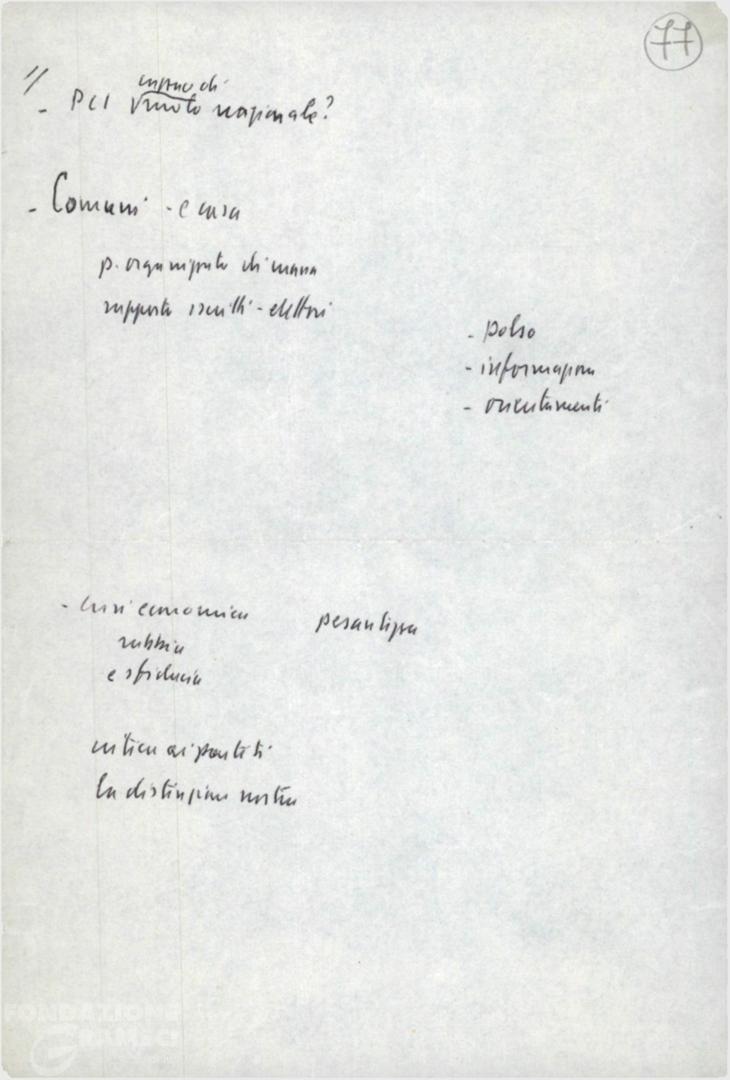 77
- PCI vuoto nazionale?
- Comuni - e casa
p. organizzato di massa
rapporto iscritti - elettori
- polso
- informazioni
- orientamenti
- crisi economica pesantezza
rabbia
e sfiducia
critica ai partiti
la distinzione nostra
FONDAZIONE
GRAMSCI